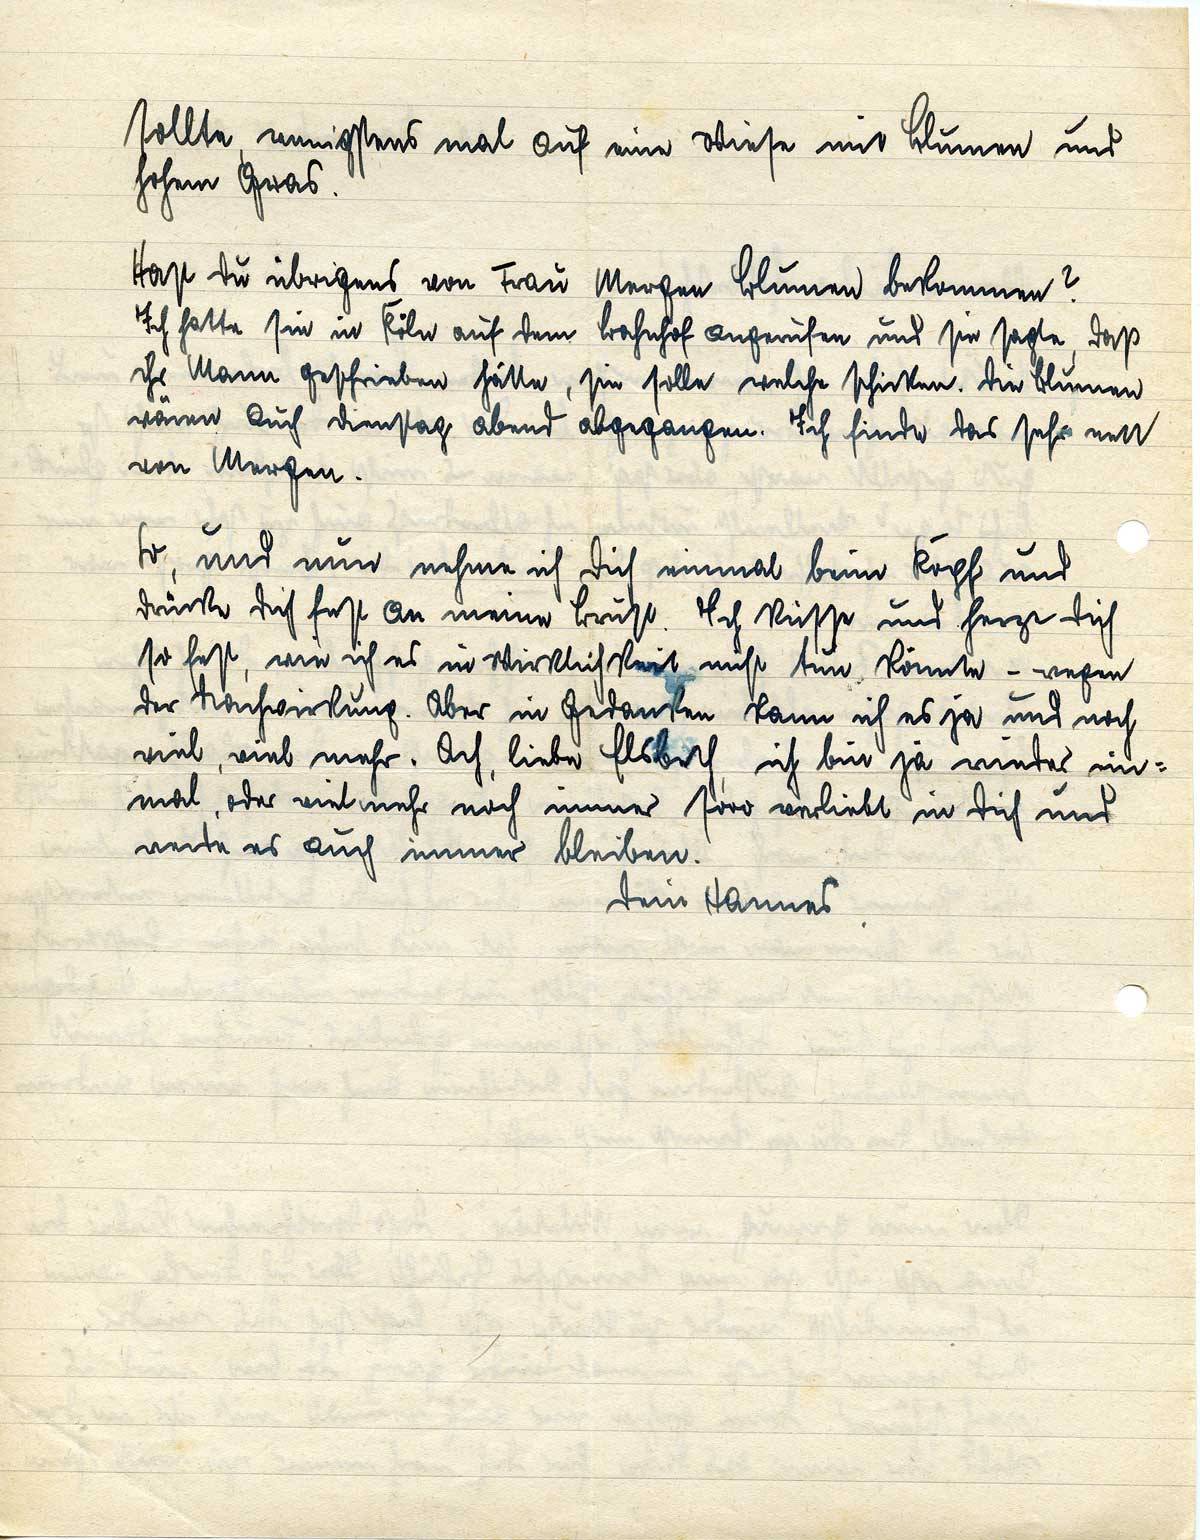 sollte, wenigstens mal auf eine Wiese mit Blumen und
hohem Gras.
Hast Du übrigens von Frau Mergen Blumen bekommen?
Ich hatte sie in Köln auf dem Bahnhof angerufen und sie sagte, daß
ihr Mann geschrieben hätte, sie solle welche schicken. Die Blumen
wären auch Dienstag abend abgegangen. Ich finde das sehr nett
von Mergen.
So, und nun nehme ich Dich einmal beim Kopf und
drücke Dich fest an meine Brust. Ich küsse und herze Dich
so fest, wie ich es in Wirklichkeit nicht tun könnte – wegen
der Nachwirkung. Aber in Gedanken kann ich es ja und noch
viel, viel mehr. Ach, liebe Elsbeth, ich bin ja wieder ein=
mal, oder vielmehr noch immer sooo verliebt in Dich und
werde es auch immer bleiben.
Dein Hannes